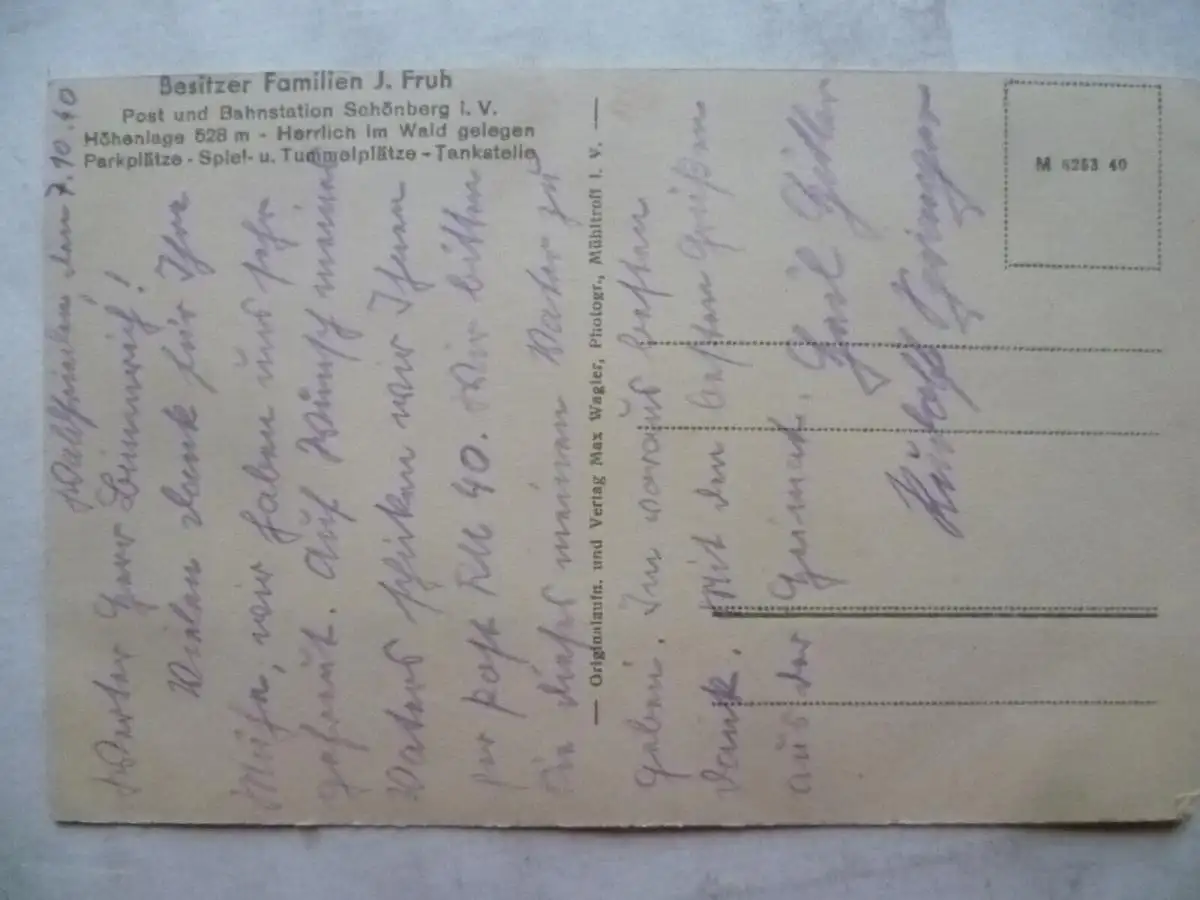 Besitzer Familien J. Fruh
Post und Bahnstation Schönberg i. V.
Höhenlage 528 m - Herrlich im Wald gelegen
Parkplätze - Spiel- u. Tummelplätze - Tankstelle
den 7.10.40
Werter Herr
Vielen Dank für Ihre
Mühe, wir haben uns sehr
gefreut. Auf Wunsch meines
Vaters schicken wir Ihnen
per Post RM 40. Wir bitten
Sie dieses meinem Vater zu
geben. Im voraus besten
Dank. Mit den besten Grüßen
aus der Heimat.
— Originalaufn. und Verlag Max Wagler, Photogr., Mühltroff i. V. —
M 8263 40